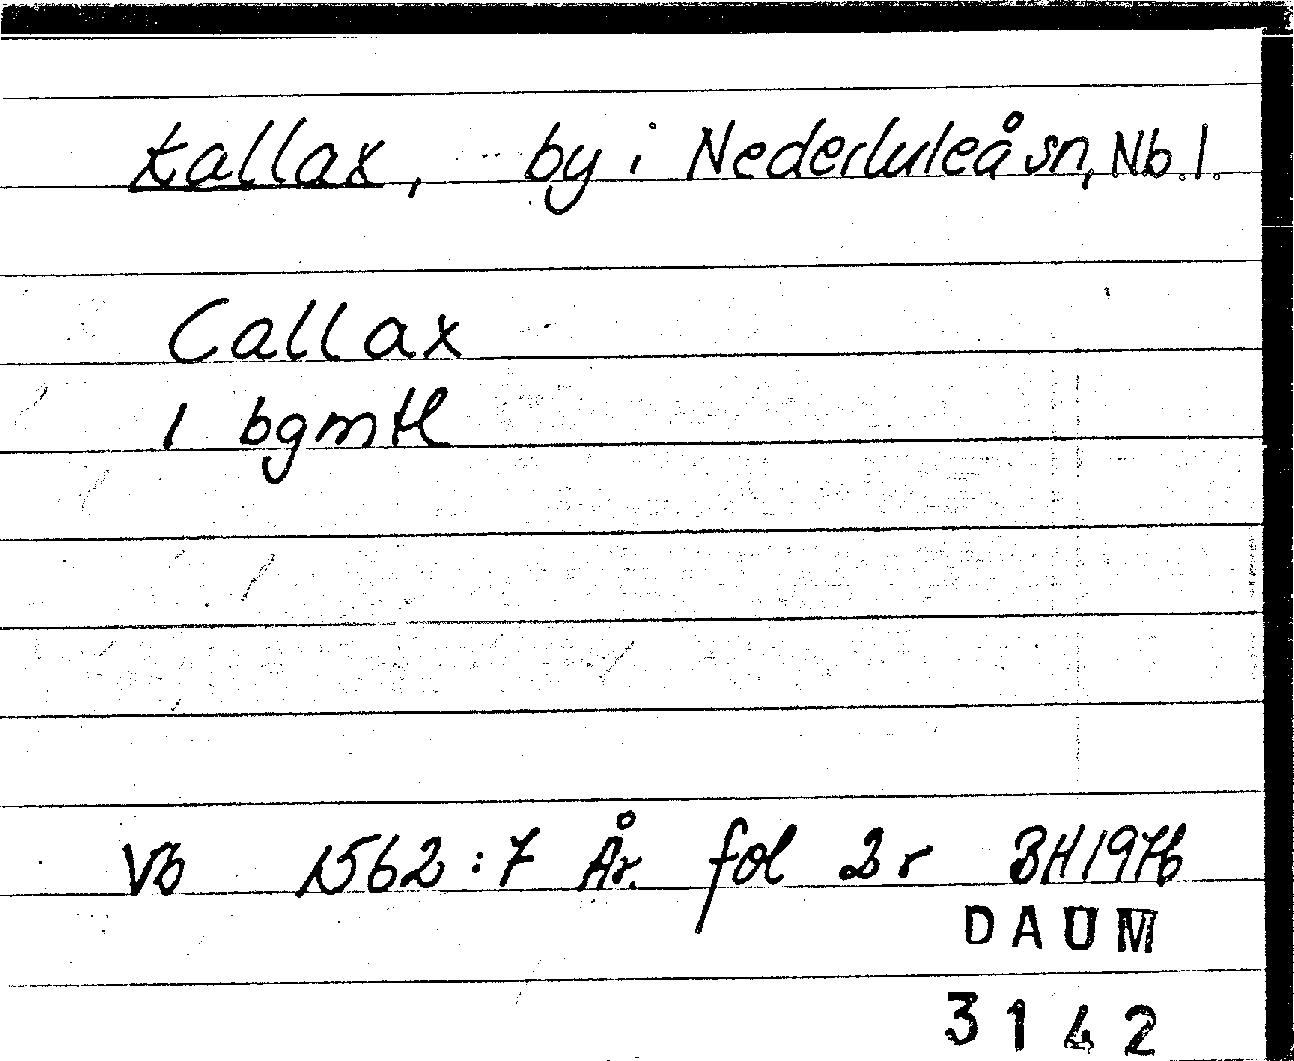 Kallax, by i Nederluleå sn, Nb. l.
Callax
1 bgmtl
Vb 1562:7 År. fol 2 r BH 1976
DAUM
3142